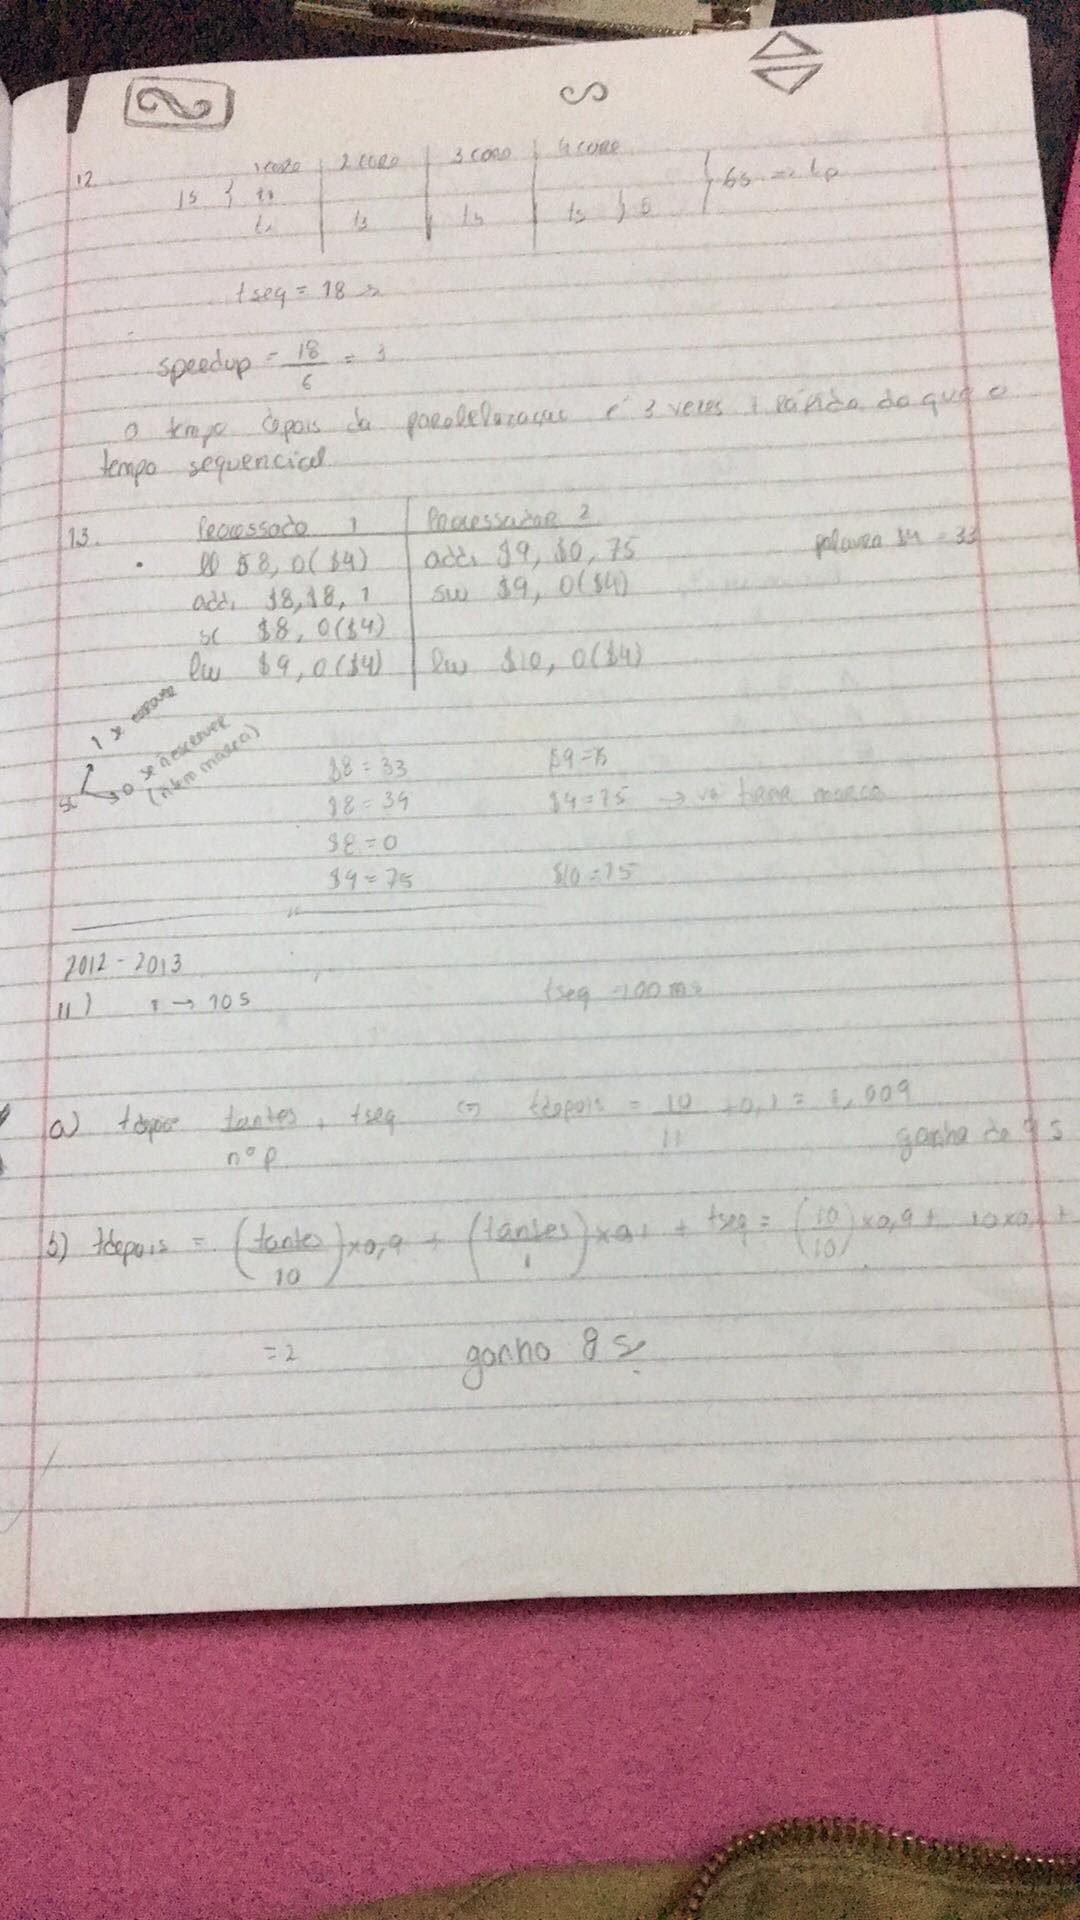 12
1core 2 core 3 core 4 core
1s } 6s => tp
ts ts ts } 5
tseq = 18 s
speedup = 18/6 = 3
o tempo depois da paralelização é 3 vezes + rápido do que o
tempo sequencial
13. Processado 1 Processador 2
ll $8, 0($4) addi $9, $0, 75 palavra $4 = 33
addi $8, $8, 1 sw $9, 0($4)
sc $8, 0($4)
lw $9, 0($4) lw $10, 0($4)
1 se escrever
sc 0 se ñ escrever
(ñ tem marca)
$8 = 33 $9 = 75
$8 = 34 $4 = 75 → vai tirar marca
$8 = 0
$9 = 75 $10 = 75
2012 - 2013
11) 1 → 10 s tseq = 100 ms
a) tdepois tantes/nº p + tseq <=> tdepois = 10/11 + 0,1 = 1,009
ganho de 9 s
b) tdepois = (tantes/10) x 0,9 + (tantes/1) x 0,1 + tseq = (10/10) x 0,9 + 10 x 0,1 +
= 2 ganho 8 s